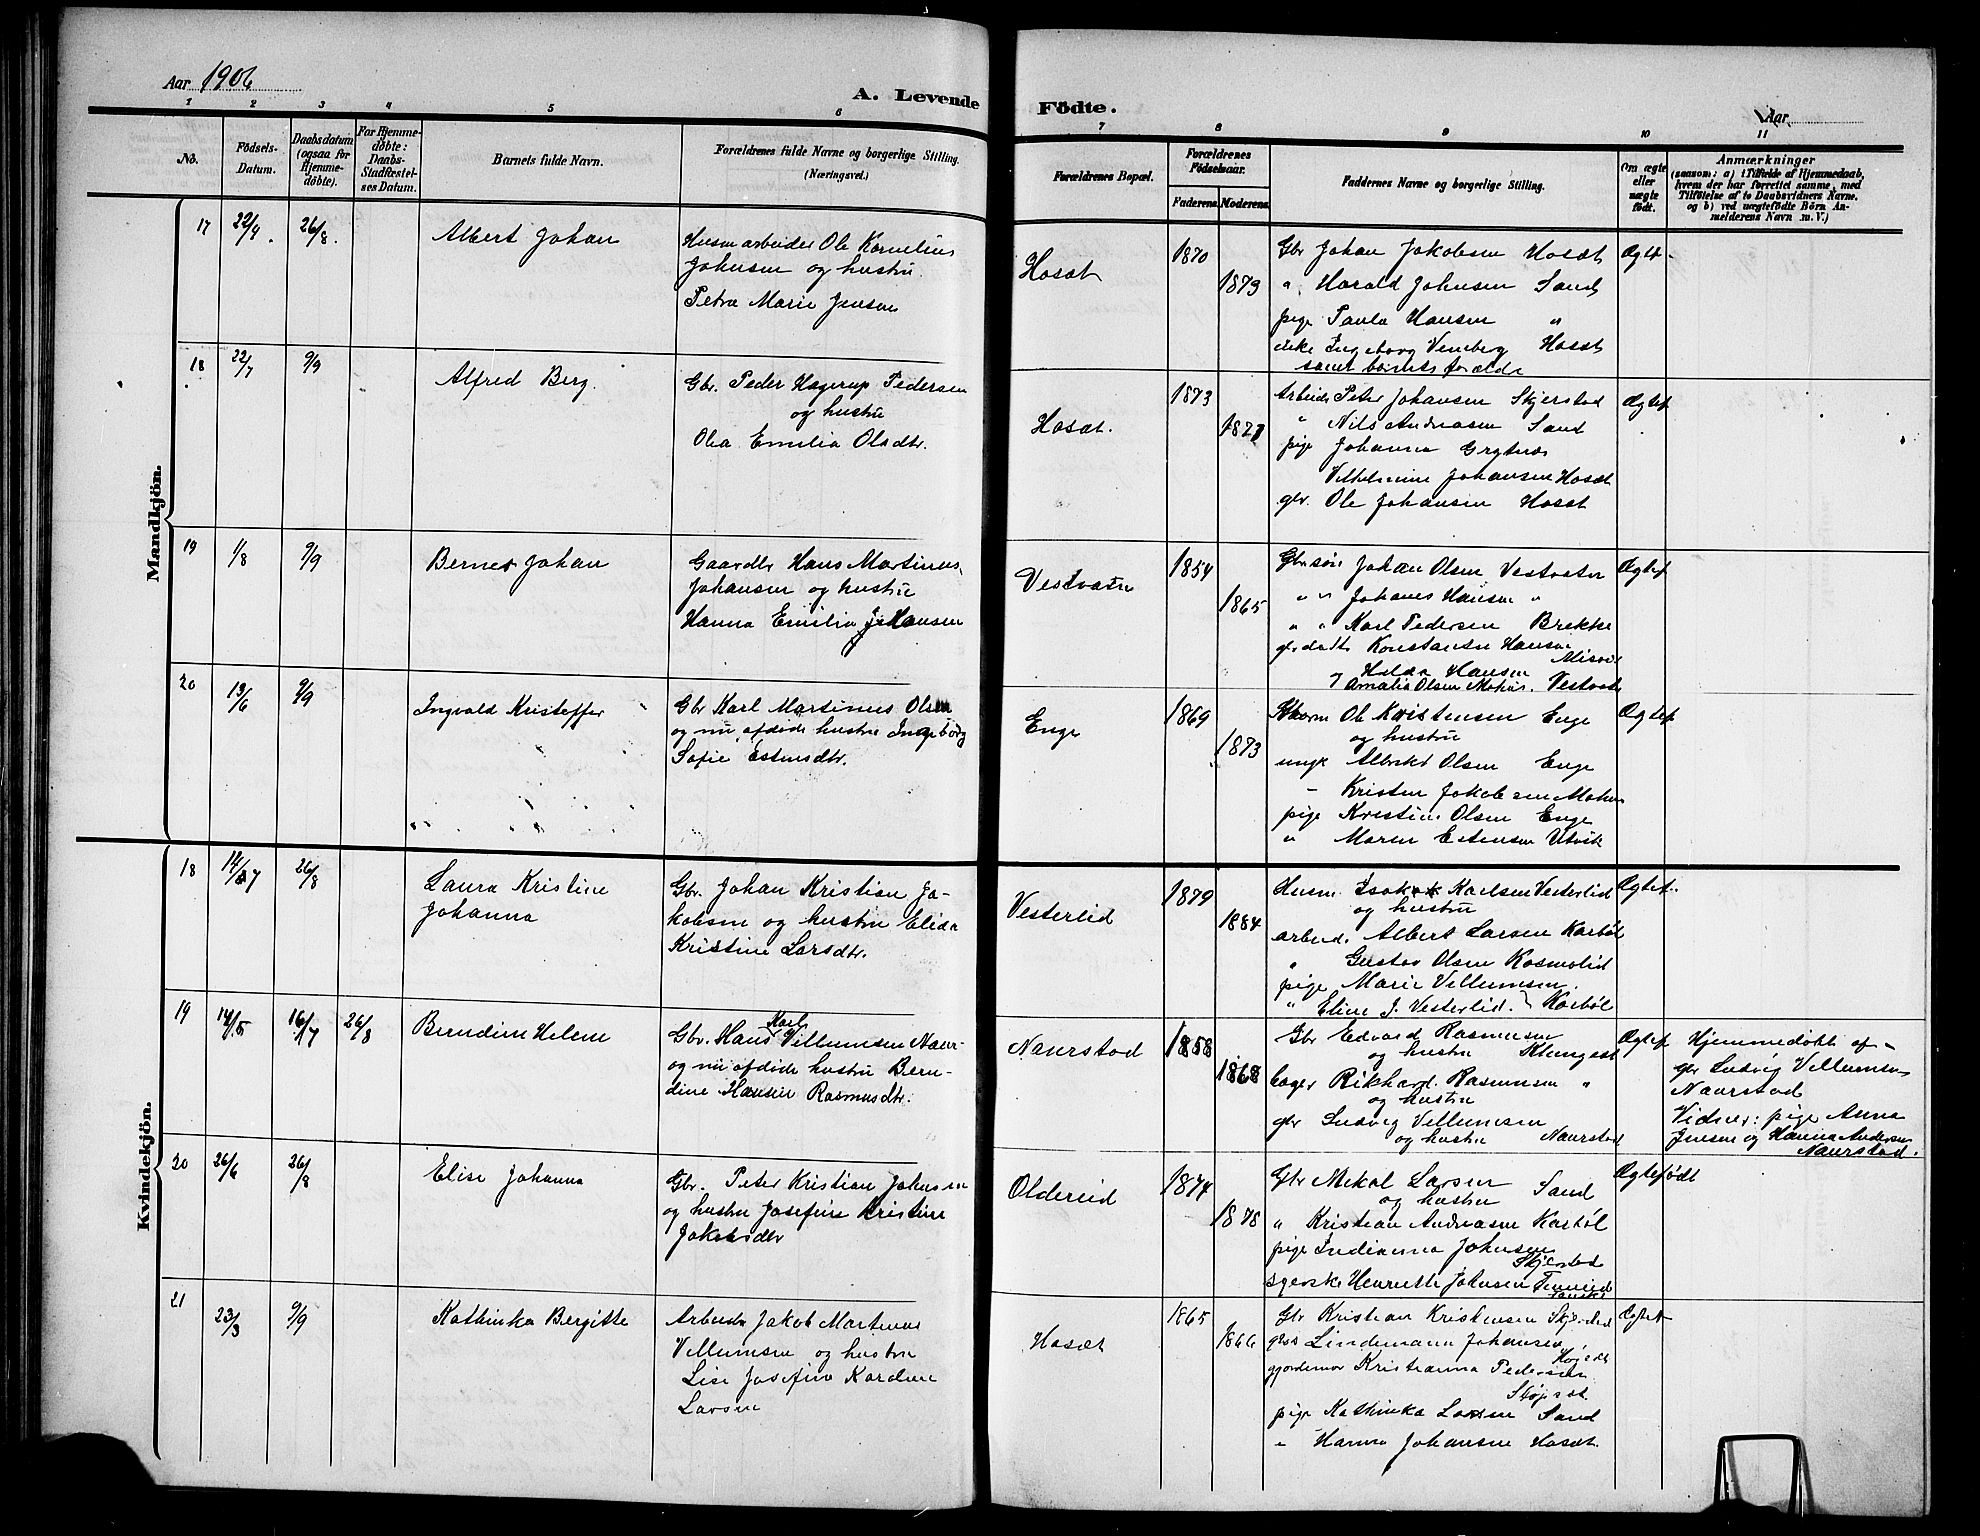 Aar 1906
A. Levende
Födte.
Aar
1 2 3 4 5 6
7 8 9 10 11
No.
Födsels-
Datum.
Daabsdatum
(ogsaa for
Hjemme-
döbte).
For Hjemme-
döbte:
Daabs-
Stadfæstel-
ses Datum.
Barnets fulde Navn.
Forældrenes fulde Navne og borgerlige Stilling.
(Næringsvei.)
Forældrenes Bopæl.
Forældrenes
Födselsaar.
Faderens.
Moderens.
Faddernes Navne og borgerlige Stilling.
Om ægte
eller
uægte
födt.
Anmærkninger
(saasom: a) i Tilfælde af Hjemmedaab,
hvem der har forrettet samme, med
Tilföielse af to Daabsvidners Navne.
og b) ved uægtefödte Börn An-
melderens Navn m. V.)
Mandkjön.
17
26/8.
Albert Johan
Husm arbeider Ole Kornelius
Johnsen og hustru
Petra Marie Jensen
Hosæt
1870
1879
Gbr Johan Jakobsen Hosæt
" Harald Johnsen Sand
pige Paula Hansen "
enke Ingeborg Venberg Hosæt
samt barnets forældre
Ægtef.
18
22/7
9/9
Alfred Berg.
Gbr. Peder Hagerup Pedersen
og hustru
Olea Emilia Olsdtr.
Hosæt.
1873
1871
Arbeider Peter Johansen Skjerstad
" Nils Andreasen Sand
pige Johanna Grytnes
Vilhelmine Johansen Hosæt
gbr. Ole Johansen Hosæt
Ægtef
19
1/8
9/9
Berner Johan
Gaardbr Hans Martinus
Johansen og hustru
Hanna Emilia Johansen
Vestvatn
1854
1865
Gbr søn Johan Olsen Vestvatn
" " Johanes Hansen "
" " Karl Pedersen Brekke
gb. datt Konstanse Hansen
Misvær
Hulda Hansen
Amalia Olsen Mohus. Vestvatn
Ægtef
20
13/6
9/9
Ingvald Kristoffer
Gbr Karl Martinus Olsen
og nu afdøde hustru Ingeborg
Sofie Estensdtr.
Enge
1869
1873
Ole Kristensen Enge
og hustru
ungk Albrekt Olsen Enge
- Kristen Jakobsen Mohus
pige Kristine Olsen Enge
" Maren Estensen Utvik
Ægtef
Kvindekjön.
18
26/8
Laura Kristine
Johanna
Gbr. Johan Kristian Ja-
kobsen og hustru Elida
Kristine Larsdtr.
Vesterlid
1879
1884
Husm. Isak Karlsen Vesterlid
og hustru
arbeid. Albert Larsen Karbøl
" Gustav Olsen Kosmolid
pige Marie Villumsen
" Eline J. Vesterlid. } Karbøl
Ægtef.
19
14/5
16/7
26/8
Berndine Helene
Gbr. Hans Karl Villumsen Naur-
og nu afdøde hustru Bern-
dine Hansine Rasmusdtr.
Naurstad
1858
1868
Gbr Edvard Rasmussen
og hustru Klungset
bager Rikhard Rasmussen "
og hustru
gbr Ludvig Villumsen
og hustru Naurstad
Ægtef
Hjemmedøbt af
gbr Ludvig Villumsen
Naurstad
Vidner: pige Anna
Jensen og Hanna Andersen
Naurstad.
20
26/6
26/8
Elise Johanna
Gbr. Peter Kristian Johnsen
og hustru Josefine Kristine
Jakobsdtr
Oldereid
1874
1878
Gbr Mekal Larsen
og hustru Sand
" Kristian Andreasen Karbøl
pige Indianna Johnsen
Skjerstad
syerske Henriette Johnsen
Ægtefödt
21
23/3
9/9
Kathinka Bergitte
Arbeider Jakob Martinus
Villumsen og hustru
Lise Josefine Kardine
Larsen
Hosæt
1865
1866
Gbr Kristian Kristensen Skjerstad
Lindemann Johansen
Hosæt
gjordemor Kristianna Pedersen
Støpset
pige Kathinka Larsen Sand
" Hanna Johansen Hosæt.
Ægtef